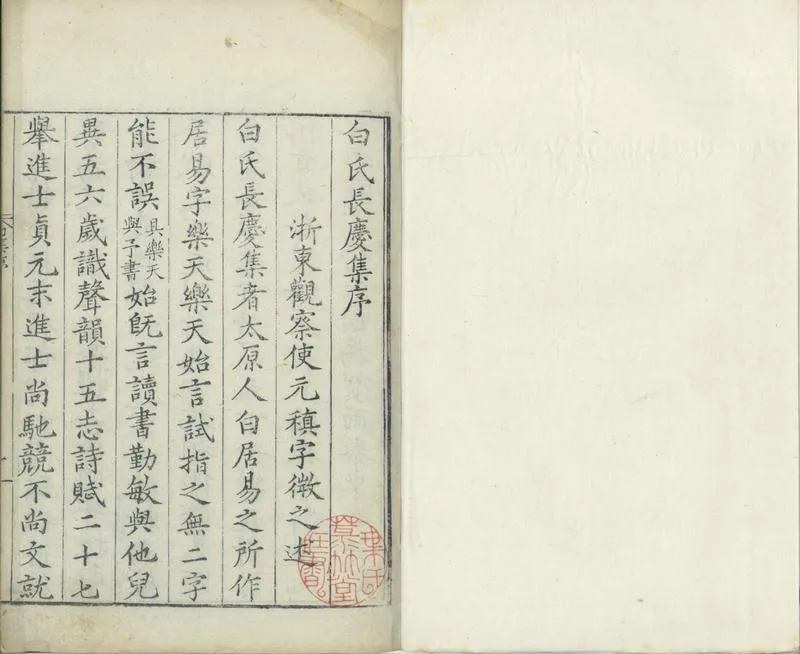 白氏長慶集序
浙東觀察使元稹字微之述
白氏長慶集者太原人白居易之所作
居易字樂天樂天始言試指之無二字
能不誤具樂天與予書始旣言讀書勤敏與他兒
異五六歲識聲韻十五志詩賦二十七
舉進士貞元末進士尚馳競不尚文就
葉氏菉竹堂藏書